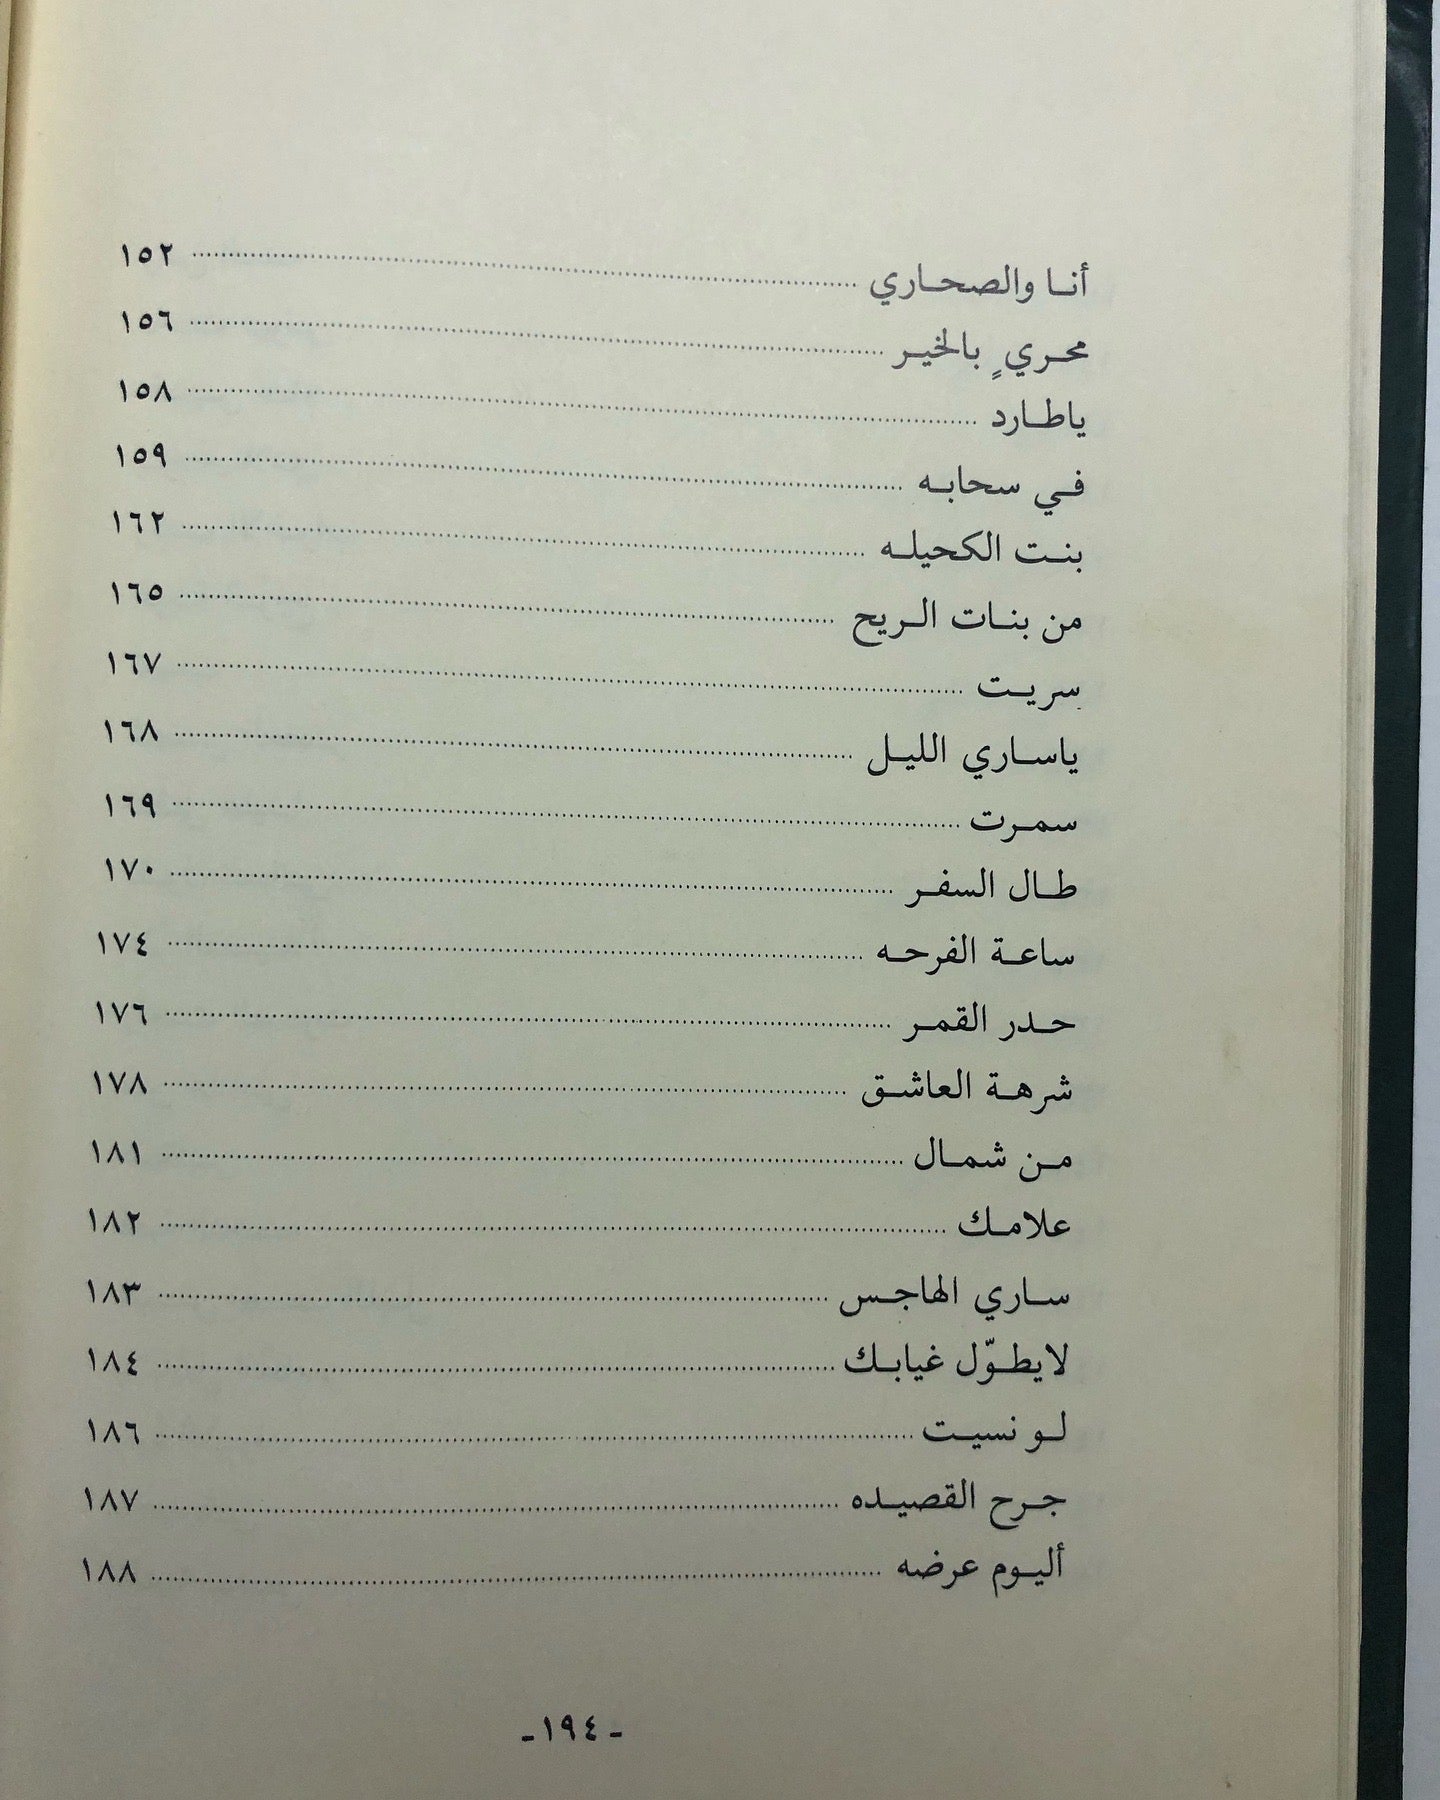 أنا والصحاري ١٥٢
محريٍ بالخير ١٥٦
ياطارد ١٥٨
في سحابه ١٥٩
بنت الكحيله ١٦٢
من بنات الريح ١٦٥
سريت ١٦٧
ياساري الليل ١٦٨
سمرت ١٦٩
طال السفر ١٧٠
ساعة الفرحه ١٧٤
حدر القمر ١٧٦
شرهة العاشق ١٧٨
من شمال ١٨١
علامك ١٨٢
ساري الهاجس ١٨٣
لايطوّل غيابك ١٨٤
لو نسيت ١٨٦
جرح القصيده ١٨٧
أليوم عرضه ١٨٨
- ١٩٤ -